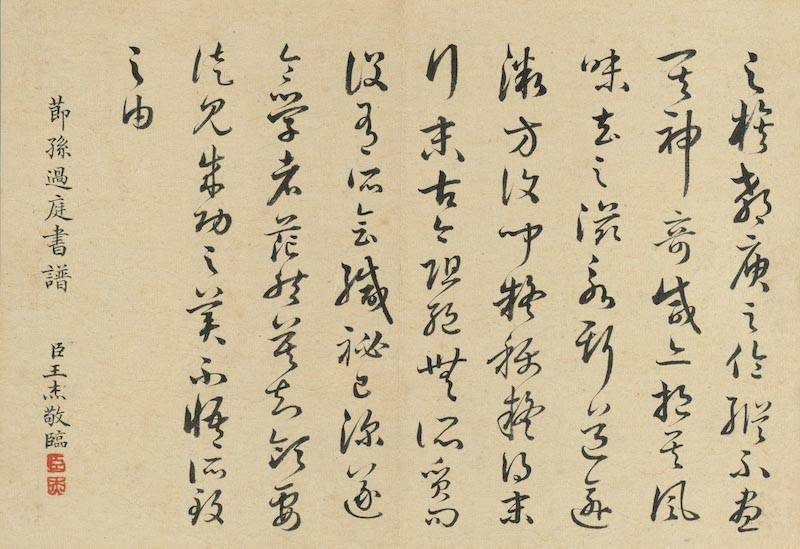 之族郗庾之倫縱不盡
其神奇咸亦挹其風
味去之滋永斯道逾
微方復聞疑稱疑得末
行末古今阻絕無所質問
設有所會緘祕已深遂
令學者茫然莫知領要
徒見成功之美不悟所致
之由
節孫過庭書譜
臣王杰敬臨